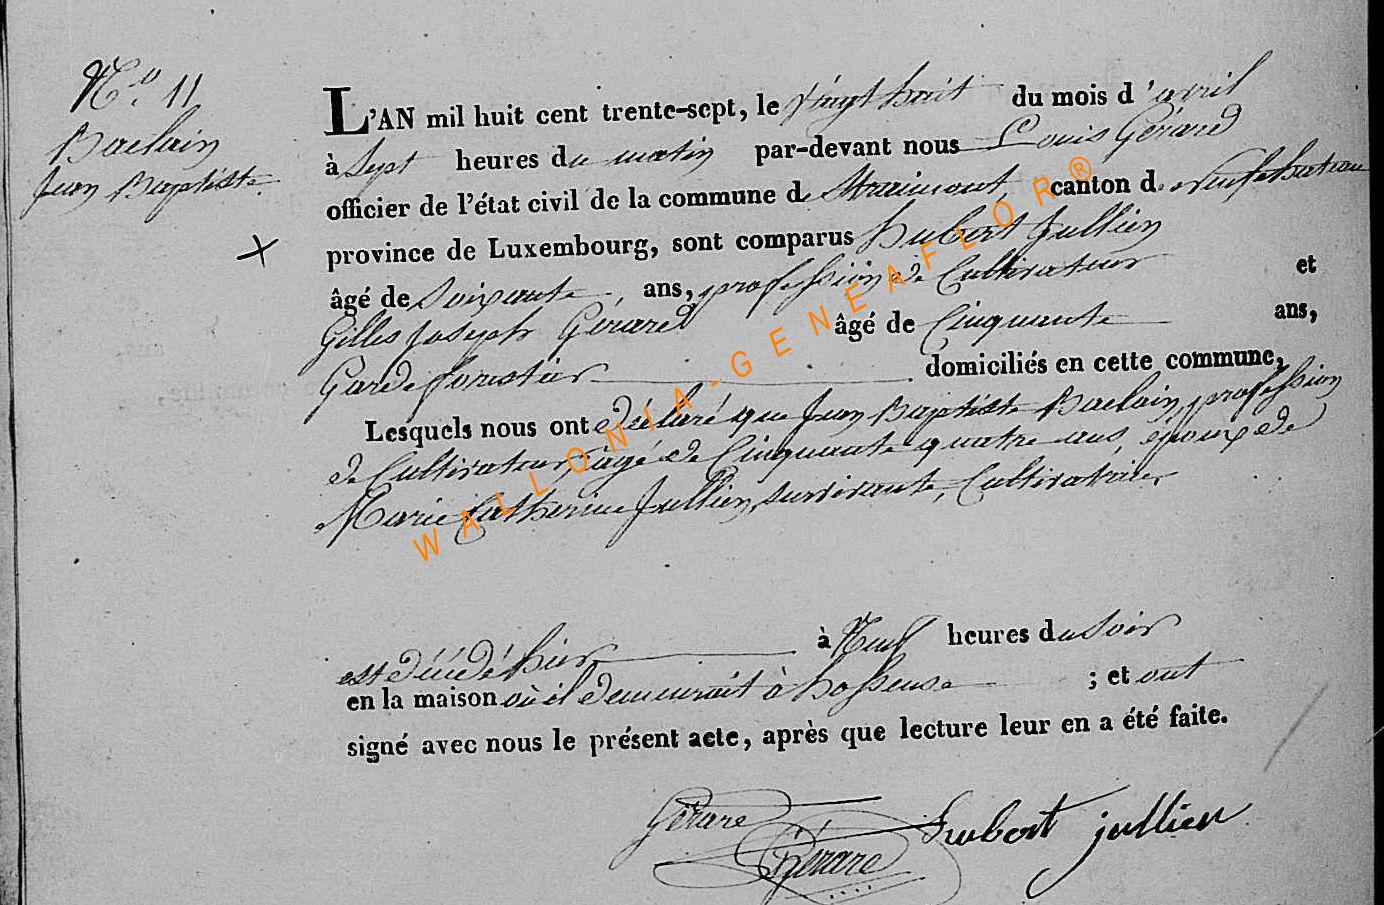 N.º 11
Baclain
Jean Baptiste
L'AN mil huit cent trente-sept, le vingt huit du mois d'avril
à Sept heures du matin par-devant nous Louis Gérard
officier de l'état civil de la commune de Straimont, canton de Neufchateau
province de Luxembourg, sont comparus hubert Jullien
âgé de Soixante ans, profession de Cultivateur et
Gilles Joseph Gerard âgé de Cinquante ans,
Garde forestier domiciliés en cette commune,
Lesquels nous ont déclaré que Jean Baptiste Baclain, profession
de Cultivateur, agé de Cinquante quatre ans, époux de
Marie Catherine Jullien, survivante, Cultivatrice,
est décédé hier à Neuf heures du Soir
en la maison où il demeurait à hosseuse ; et ont
signé avec nous le présent acte, après que lecture leur en a été faite.
Gérard
Gerard
hubert jullien
WALLONIA-GENEAFLOR®